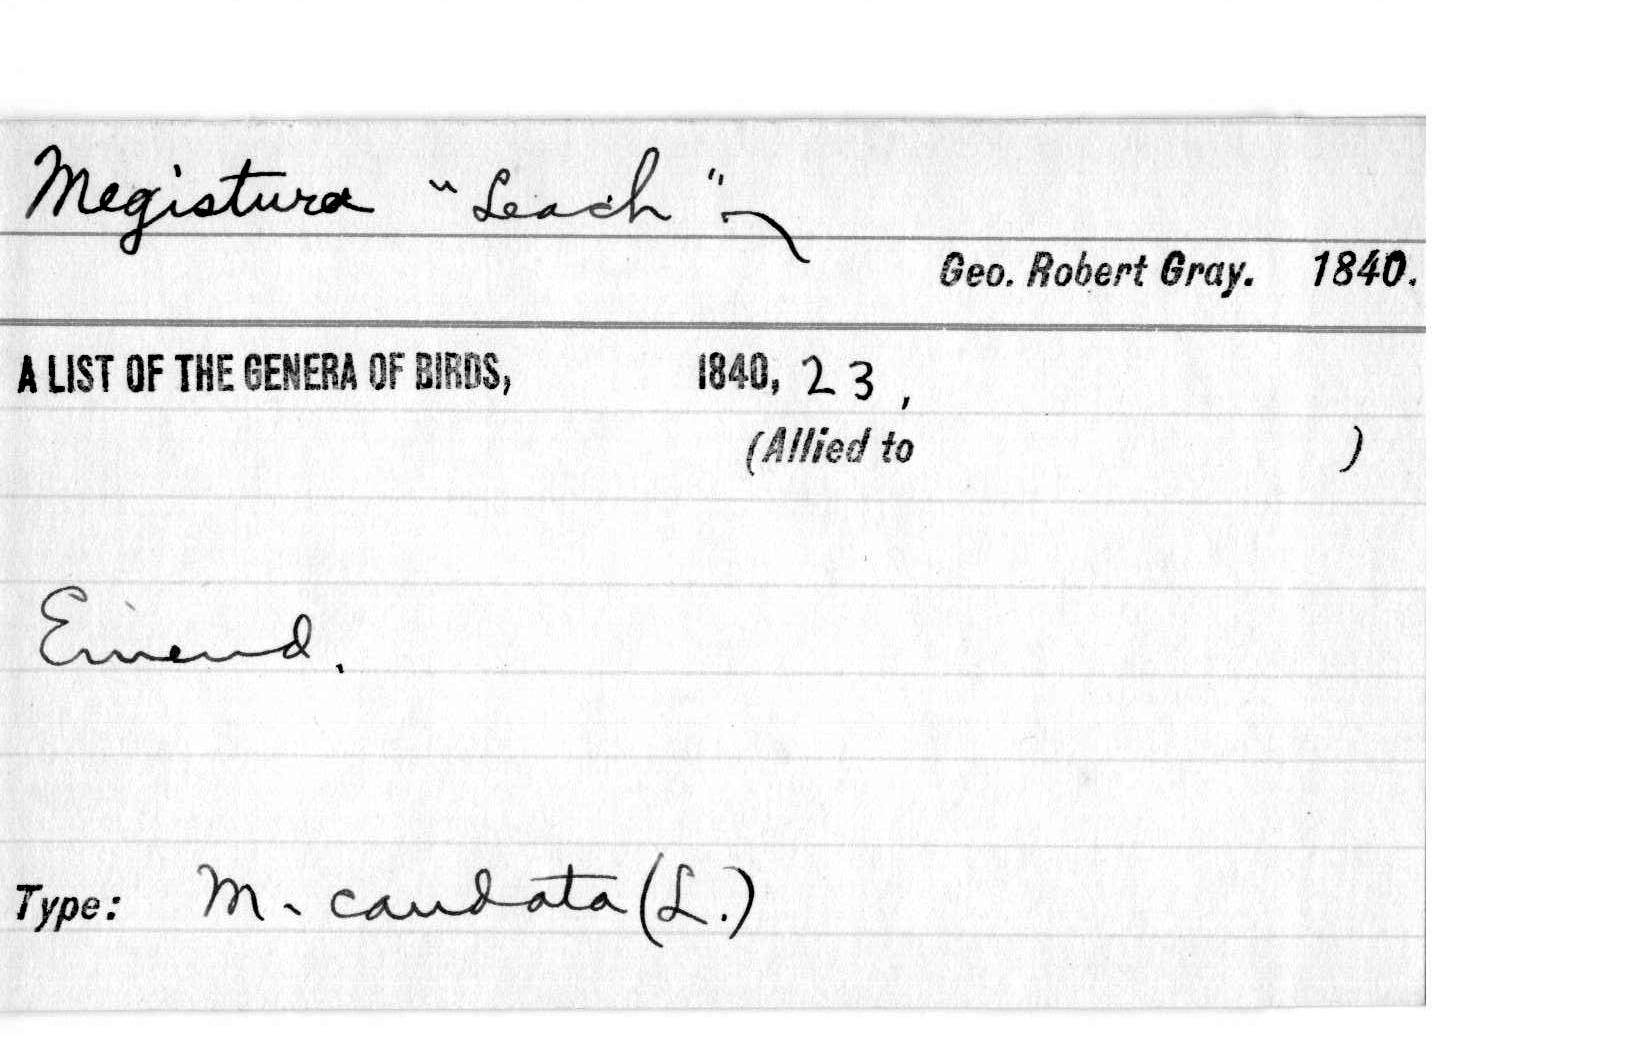 Megistura "Leach"
Geo. Robert Gray. 1840.
A LIST OF THE GENERA OF BIRDS, 1840, 23,
(Allied to )
Emend.
Type: M. caudata (L.)